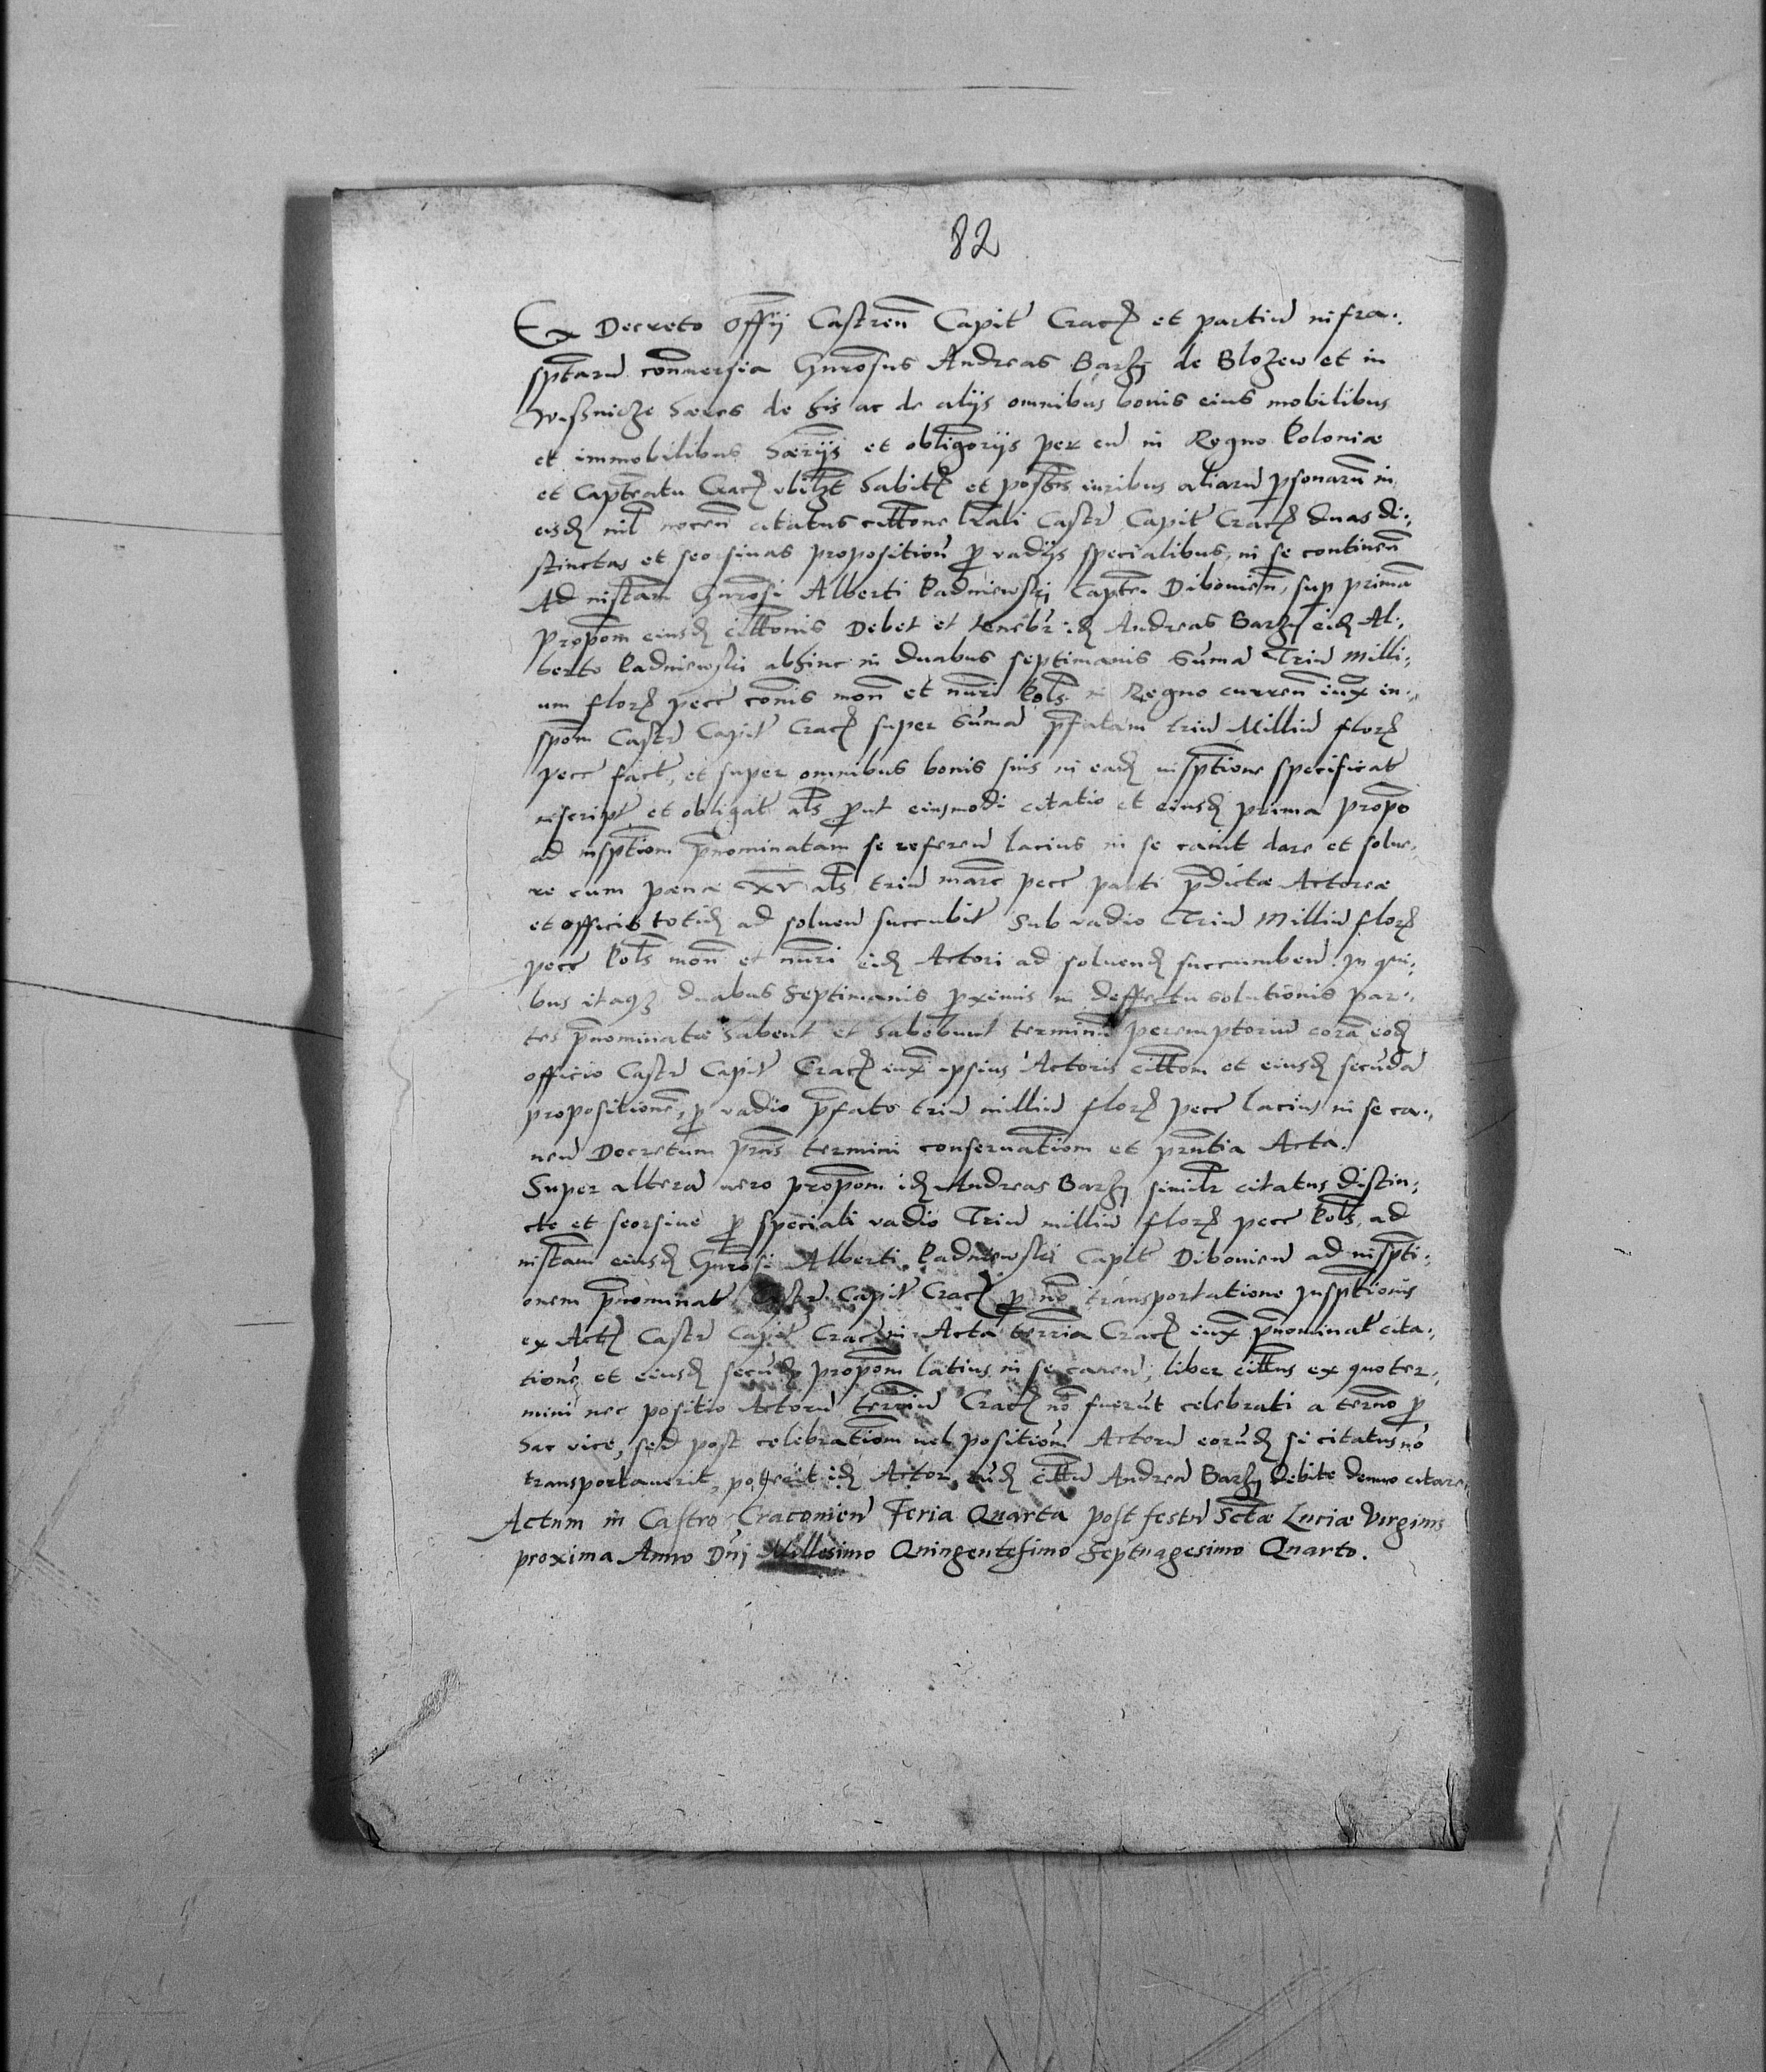 82
Ex Decreto Offÿ Castren Capit Crac et partiu infra:
sptaru conuersia Gnrosus Andreas Barzÿ de Blozew et in
Wissnicze haeres de his ac de alÿs omnibus bonis eius mobilibus
et immobilibus haerÿs et obligorÿs per eu in Regno Poloniæ
et Capteatu Crac vbilzt habit et possis iuribus aliaru psonaru in
eisd nil nocen citatus cittone lrali Castr Capit Crac duas di:
stinctas et seorsiuas propositiou p vadÿs specialibus, in se continen
Ad nistam Gnrosi Alberti Padniewskj Capte Dibowien, sup prima
Propom eiusd cittonis Debet et tenebr: id Andreas Barzÿ eid Al:
berto Padniewski abhinc in duabus septimanis Suma Triu Milli:
um florz pecc comis mon et nuri Pols in Regno curren iux in:
spom Castr Capit Crac super Suma pfatam triu Milliu florz
pecc fact, et super omnibus bonis suis in ead insptione specificat
inscript et obligat als put eiusmodi citatio et eiusd prima propo
ad insptiom pnominatam se referen lacius in se canit dare et solue:
re cum pæna XV als triu marc pecc parti pdictæ Actoreæ
et officio totid ad soluen succubit Sub vadio Triu Milliu florz
pecc Pols mon et nuri eid Actori ad soluend succumben. In qui:
bus itaqz duabus septimanis pximis in deffectu solutionis par:
tes pnominatæ habent et habebunt terminu peremptoriu cora eod
officio Castr Capit Crac iux ipsius Actoris cittom et eiusd secuda
propositione, p vadio pfato triu milliu florz pecc lacius in se ca:
nen Decretum pns termini conseruatiom et prntia Acta.
Super altera uero propom id Andreas Barzÿ similr citatus distin:
cte et seorsiue p speciali vadio Triu milliu florz pecc Pols, ad
nistam eiusd Gnrosi Alberti Padniewski Capit Dibowien ad nispti:
onem pnominat Castr Capit Crac p no transportatione Insptionis
ex Act Castr Capit Crac in Acta terria Crac iux pnominat cita:
tione et eiusd secud propom latius in se canen, liber cittus ex quo ter:
mini nec positio Actoru terriu Crac no fuerut celebrati a termo p
hac vice, sed post celebratiom uel positiom Actoru eorud si citatus no
transportauerit, poterit id Actor eud cittu Andrea Barzÿ debite denuo citare
Actum in Castro Cracouien Feria Quarta post festu Sctæ Luciæ Virginis
proxima Anno Dnj Millesimo Quingentesimo Septuagesimo Quarto.